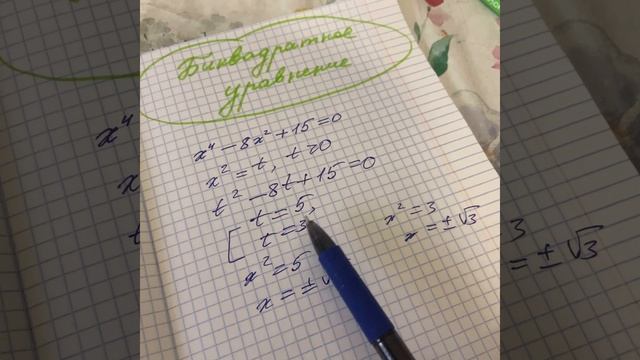 Биквадратное
уравнение
x⁴ − 8x² + 15 = 0
x² = t, t ≥ 0
t² − 8t + 15 = 0
t = 5,
t = 3
x² = 5
x = ±√
x² = 3
x = ±√3